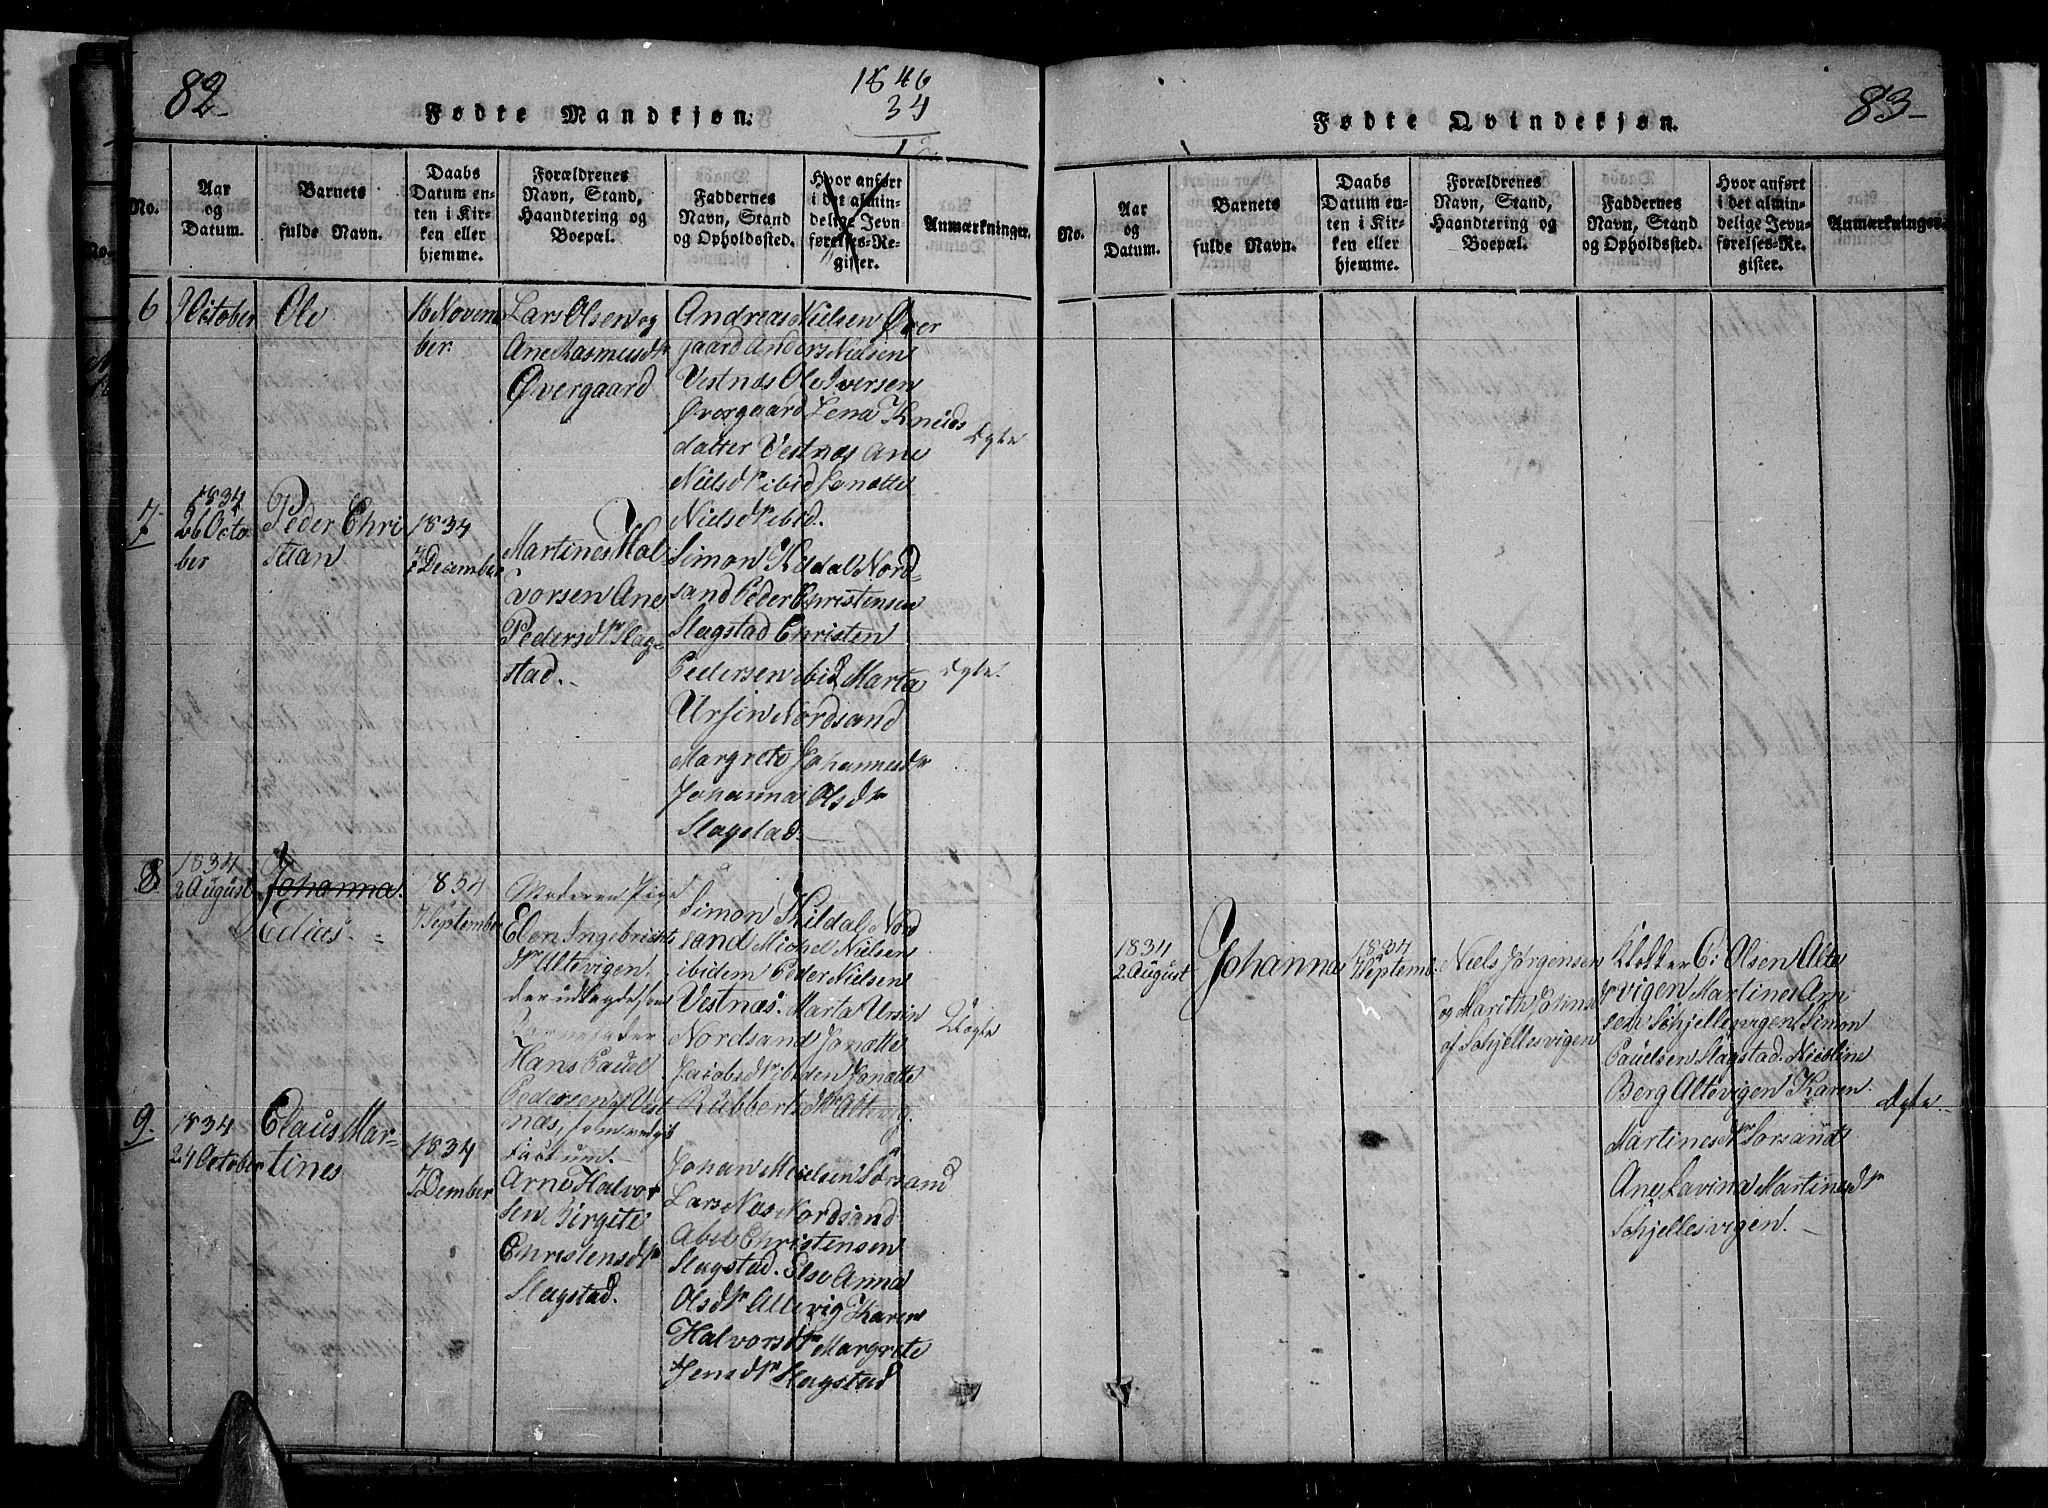 82
1846
34
Fødte Mandkjøn.
No.
Aar
og
Datum.
Barnets
fulde Navn.
Daabs
Datum en-
ten i Kir-
ken eller
hjemme.
Forældrenes
Navn, Stand,
Haandtering og
Boepæl.
Faddernes
Navn, Stand
og Opholdssted.
Hvor anført
i det almin-
delige Jevn-
førelses-Re-
gister.
Anmærkninger.
6
October
Ole
16 Novem
ber.
Lars Olsen og
Ane Rasmusdr
Øvergaard
Andreas Nielsen Øver
gaard Anders Nielsen
Vestnæs Ole Iversen
Øvergaard Lena Knuds
datter Vestnæs Ane
Nielsdr ibid Jonette
Nielsdr ibid.
Døbte
7
1834
26 Octo
ber
Peder Chri
stian
1834
7 December
Martines Hal
vorsen Ane
Pedersdr Slag-
stad.
Simon Kildal Nord-
sand Peder Christensen
Slagstad Christen
Pedersen ibid Marta
Ursin Nordsand
Margrete Johannesdr
Johanna Olsdr
Slagstad.
Døbte.
8
1834
2 August
Johanna.
Edias.
1834
7 September
Moderen Pige
Elen Ingebrigts
dr Altevigen.
der udlagde som
Barnefader
Hans Pauel
Pedersen Vest
næs, som vedgik
Factum.
Simon Kildal Nord
sand Michel Nielsen
ibidem Peder Nielsen
Vestnæs. Marta Ursin
Nordsand Jonette
Jacobsdr ibidem Jonette
Rubbertsdr Altevig.
Døbte
9.
1834
24 October
Claus Mar-
tines
1834
7 Dember
Arne Halvor
sen Birgite
Christensdr
Slagstad.
Johan Nielsen Sørsand
Lars Næs Nordsand
Abel Christensen
Slagstad. Else Anna
Olsdr Altevig Karen
Halvorsdr Margrete
Jensdr Slagstad
83
Fødte Qvindekjøn.
No.
Aar
og
Datum.
Barnets
fulde Navn.
Daabs
Datum en-
ten i Kir-
ken eller
hjemme.
Forældrenes
Navn, Stand,
Haandtering og
Boepæl.
Faddernes
Navn, Stand
og Opholdssted.
Hvor anført
i det almin-
delige Jevn-
førelses-Re-
gister.
Anmærkninger.
1834
2 August
Johanna
1834
7 Septemb.
Niels Jørgensen
og Marith
af Schjellesvigen
Klokker C: Olsen Alte
vigen Martines Arn
sen Schjellesvigen Simon
Pauelsen Slagstad. Nicoline
Berg Altevigen Karen
Martinesdr Sørsand
Ane Lavina Martinesdr
Schjellesvigen.
Døbte.